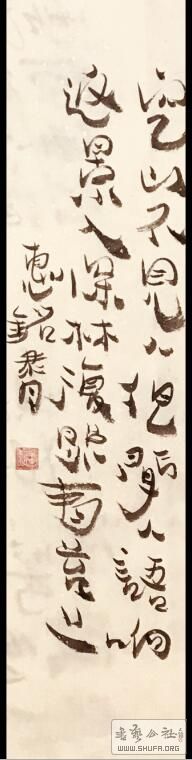 空山不見人但聞人語響
返景入深林復照青苔上
惠銘
書艺公社
WWW.SHUFA.ORG